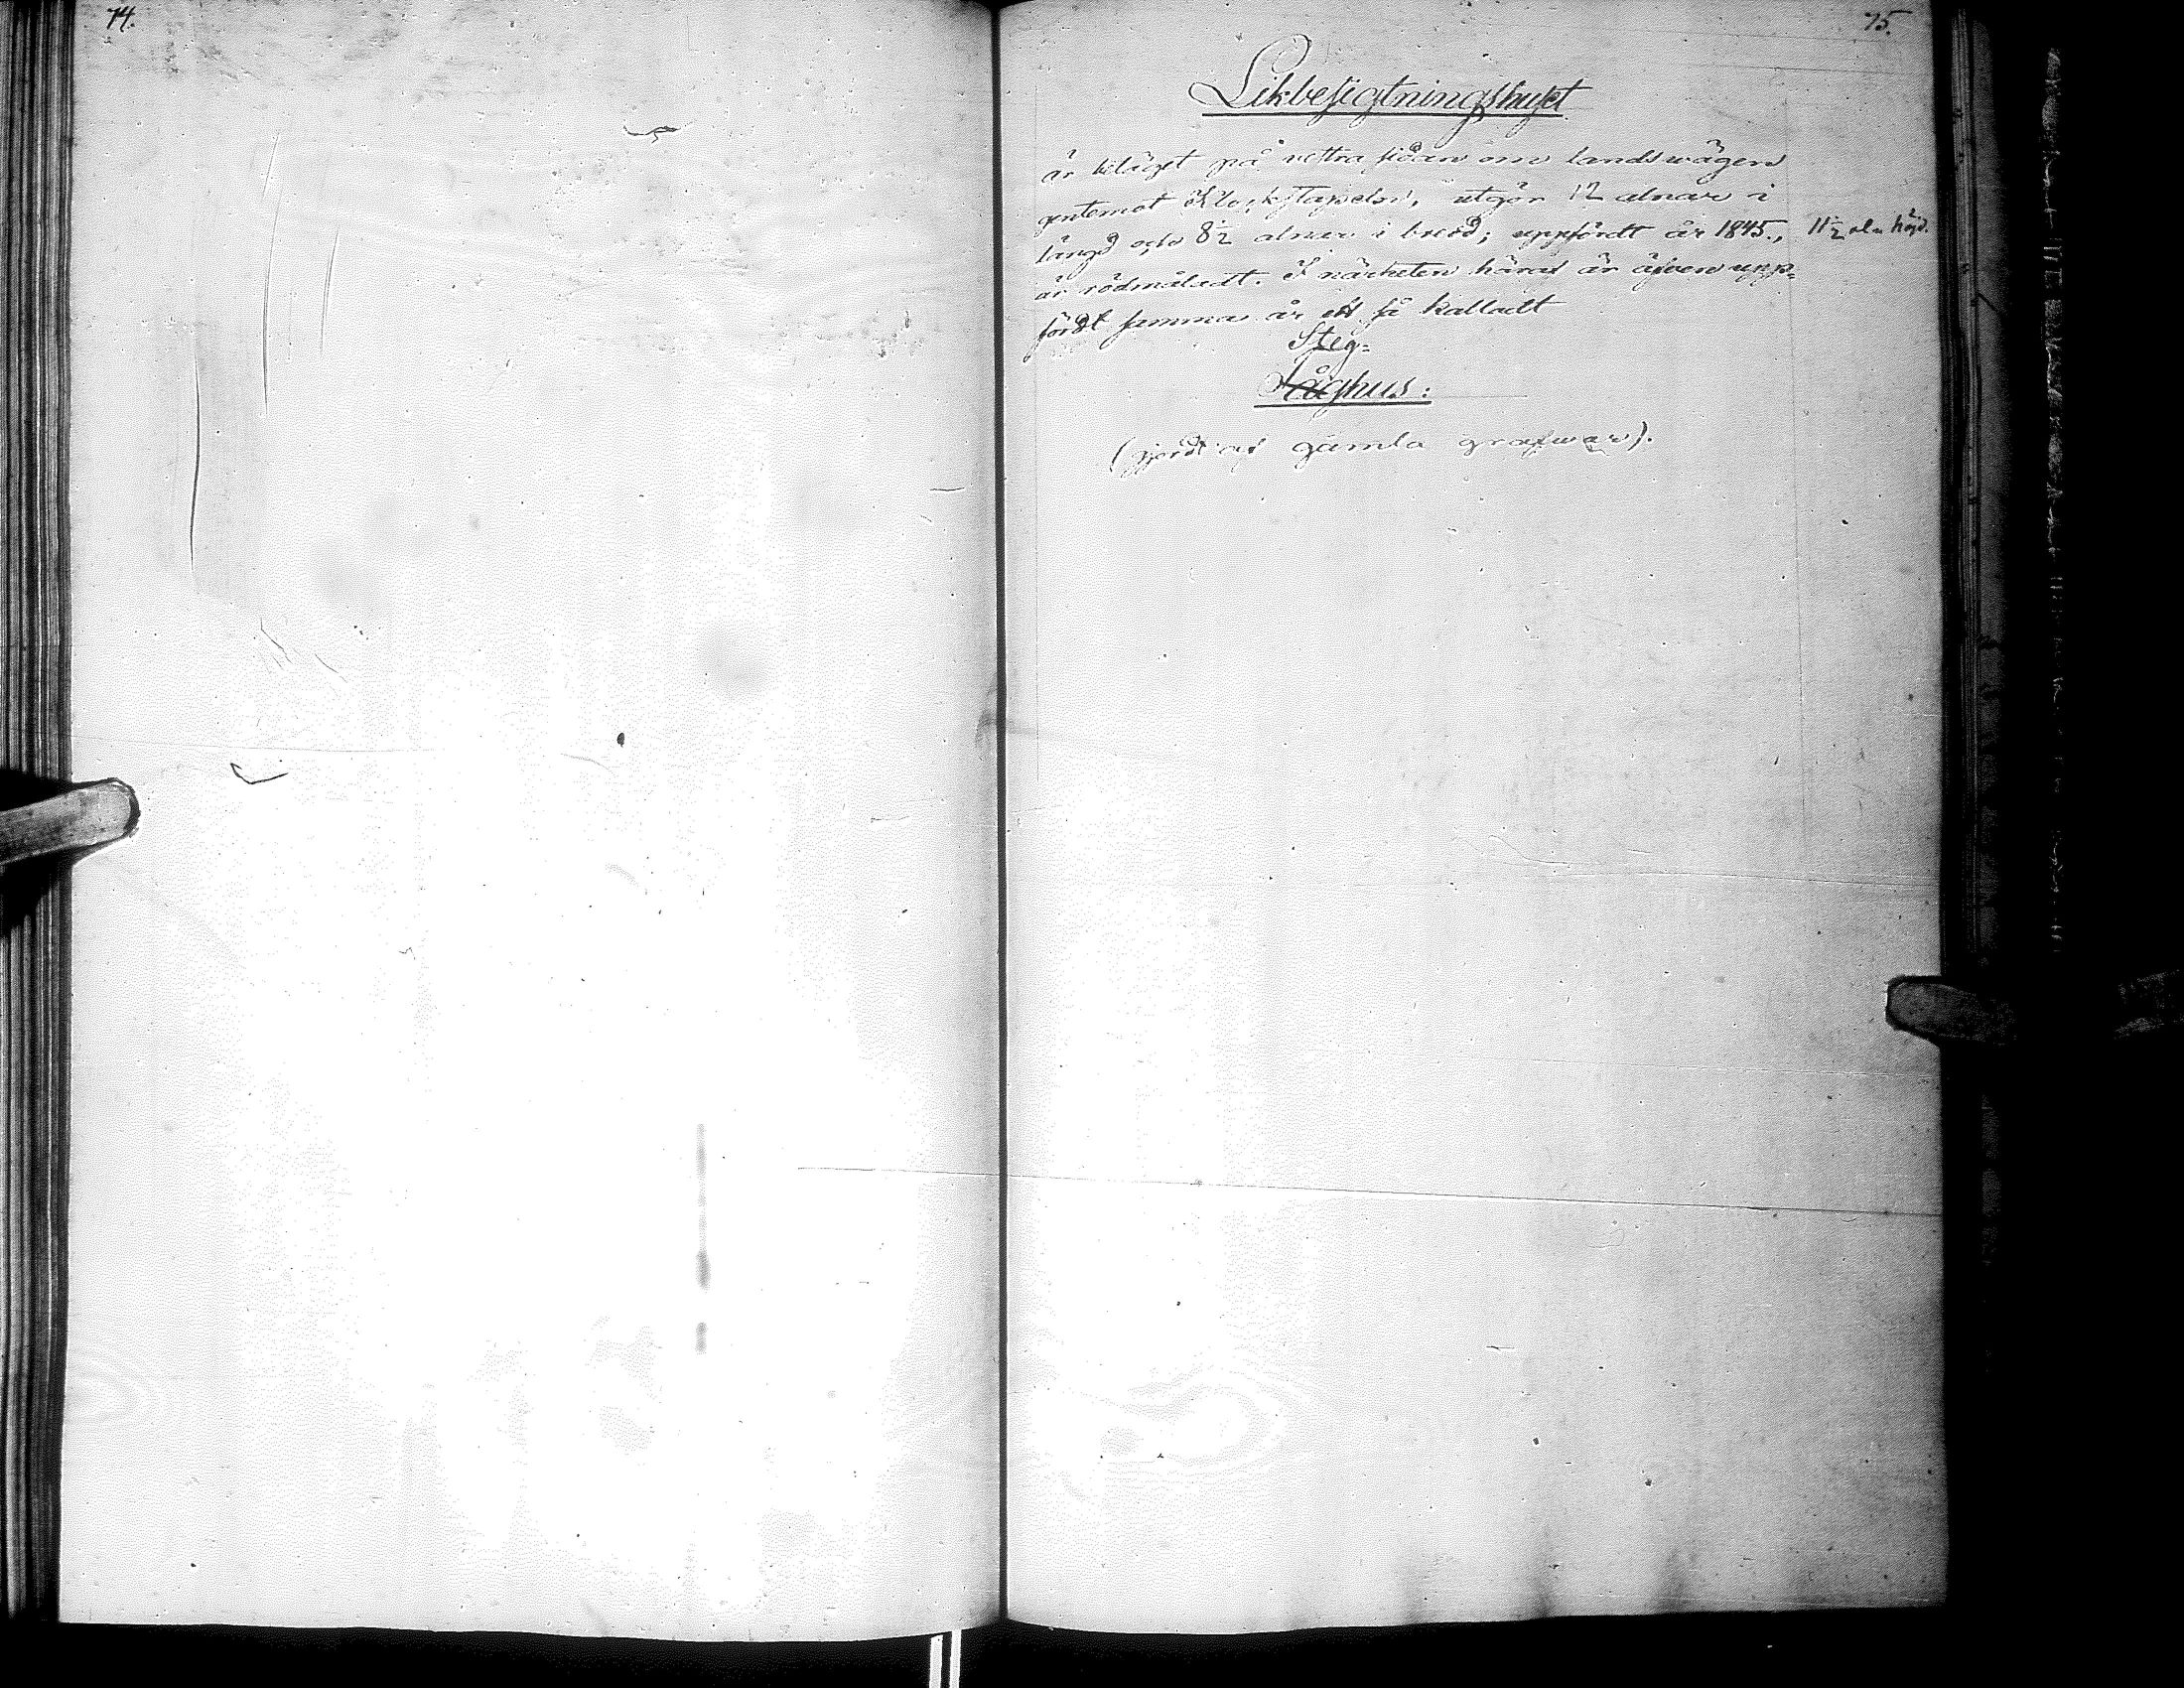 74.
75.
Likbesigtningshuset
är beläget på vestra sidan om landswägen
gentemot Klockstapeln, utgör 12 alnar i
längd och 8½ alnar i bredd; uppfördt år 1845., 11½ aln höjd.
är rödmåladt. I närheten häraf är äfven upp=
fördt samma år ett så kalladt
Steg=
Låghus:
(gjordt af gamla grafwar).